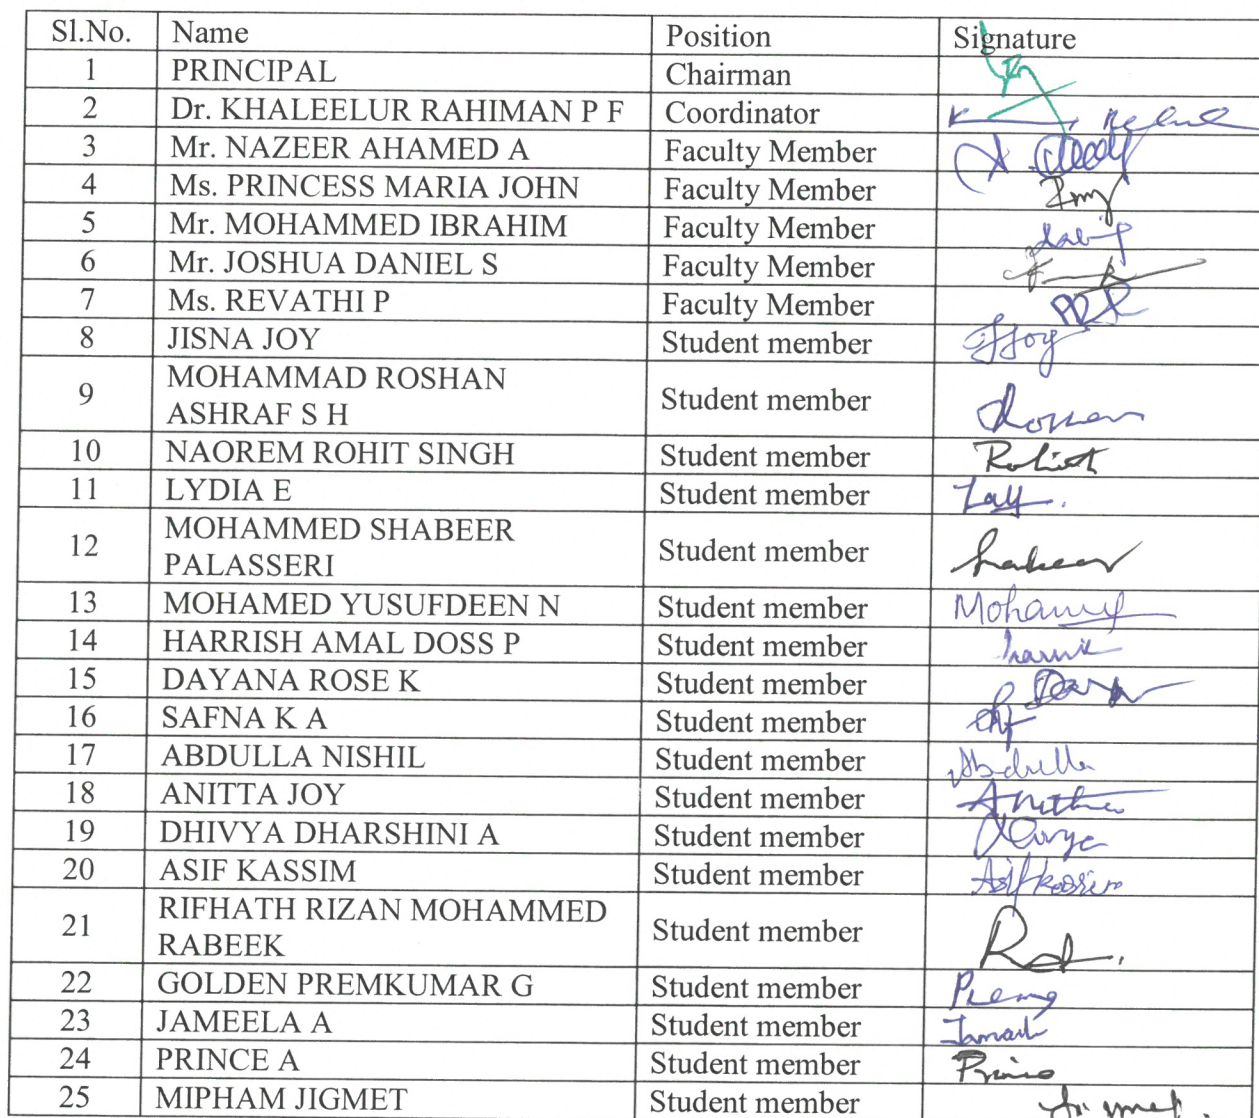 Sl.No. Name Position Signature
1 PRINCIPAL Chairman
2 Dr. KHALEELUR RAHIMAN P F Coordinator
3 Mr. NAZEER AHAMED A Faculty Member
4 Ms. PRINCESS MARIA JOHN Faculty Member
5 Mr. MOHAMMED IBRAHIM Faculty Member
6 Mr. JOSHUA DANIEL S Faculty Member
7 Ms. REVATHI P Faculty Member
8 JISNA JOY Student member JJoy
MOHAMMAD ROSHAN
9 ASHRAF S H Student member
10 NAOREM ROHIT SINGH Student member
11 LYDIA E Student member
MOHAMMED SHABEER
12 PALASSERI Student member
13 MOHAMED YUSUFDEEN N Student member
14 HARRISH AMAL DOSS P Student member
15 DAYANA ROSE K Student member
16 SAFNA K A Student member
17 ABDULLA NISHIL Student member Abdulla
18 ANITTA JOY Student member
19 DHIVYA DHARSHINI A Student member
20 ASIF KASSIM Student member Asifkassim
RIFHATH RIZAN MOHAMMED
21 RABEEK Student member
22 GOLDEN PREMKUMAR G Student member
23 JAMEELA A Student member
24 PRINCE A Student member
25 MIPHAM JIGMET Student member